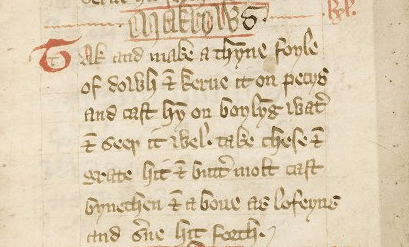 makrows
Tak and make a thyne foyle
of dowh & kerue it on pecys
and cast hȳ on boylȳg wat̄
& seeþ it wel. take chese &
grate hit & butt̄ molt cast
bynethen & a boue as loseyns
and s̄ue hit forth.